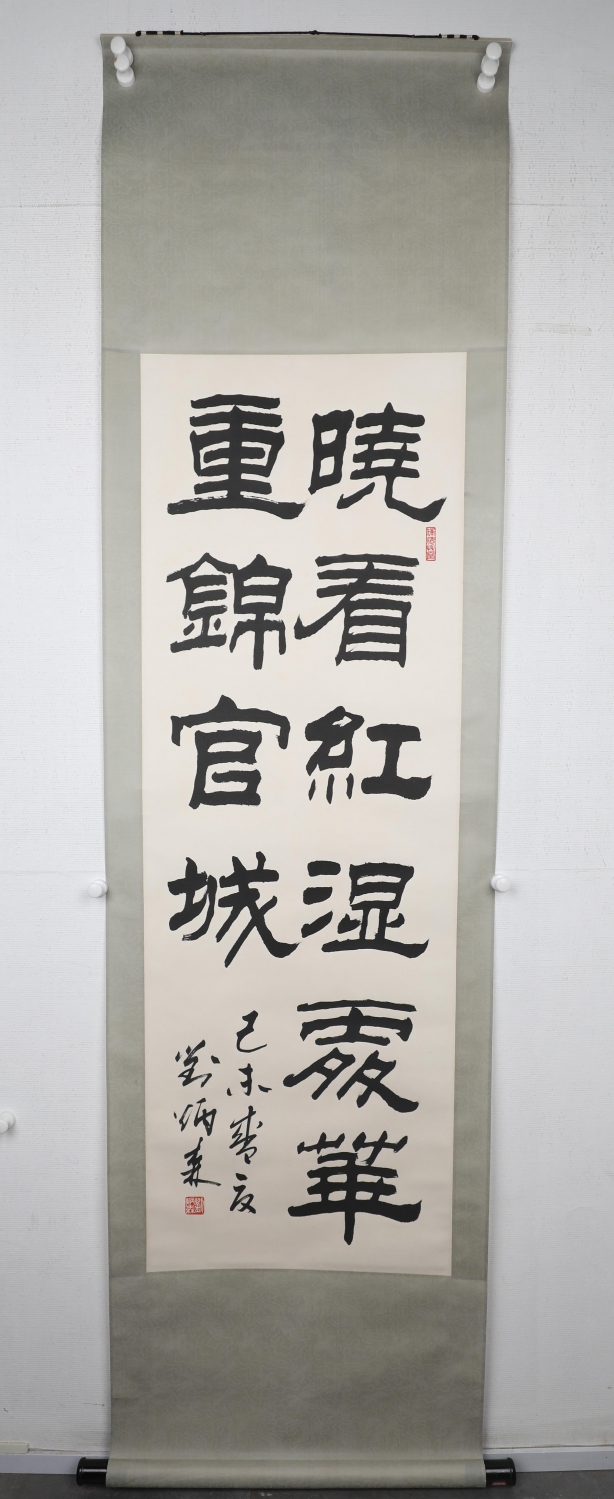 曉看紅湿處華
重錦官城
己未春
劉炳森